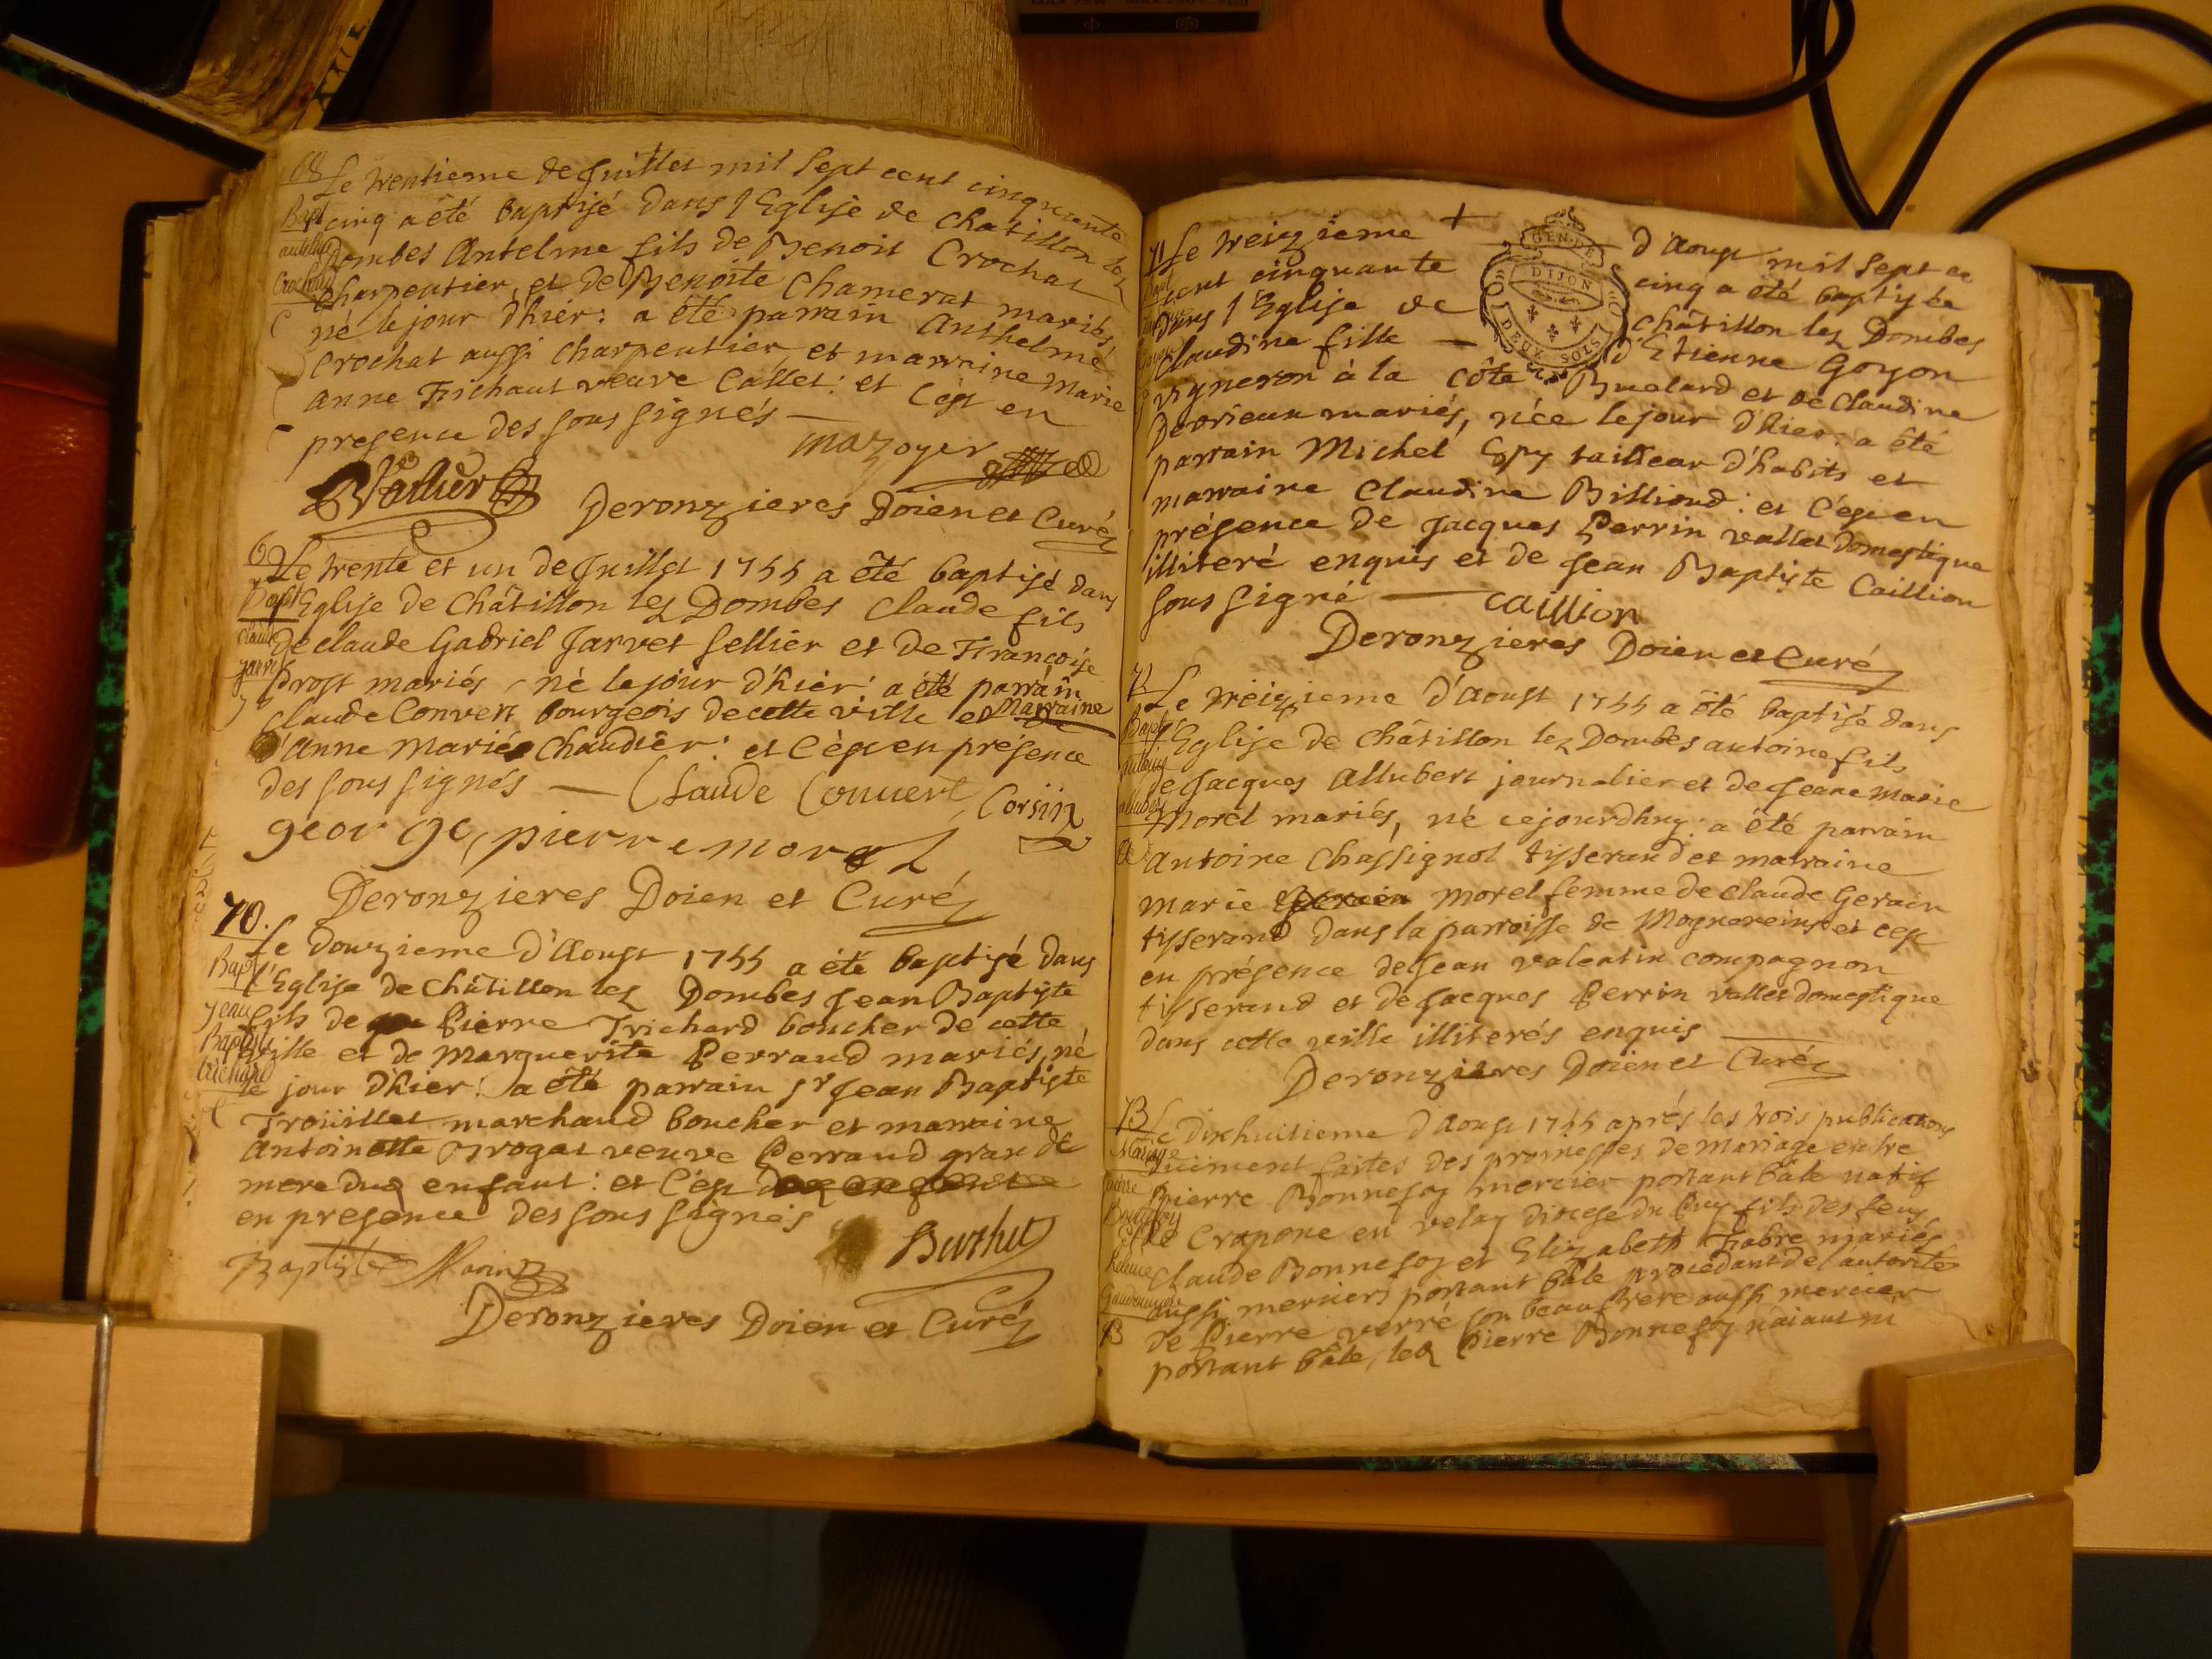 68
Le trentieme de Juillet mil Sept cent cinquante
Bapt
cinq a été baptisé dans l'Eglise de Chatillon lez
Dombes Antelme fils de Benoit Crochat
charpentier, et de Benoite Chamerat mariés,
né le jour d'hier: a été parrain Anthelme
Crochat aussi charpentier et marraine Marie
anne Fichaut veuve Callet: et c'est en
presence des sous signés —
mazoyer
Vallier
Deronzieres Doien et Curé
69
Le trente et un de Juillet 1755 a été baptisé dans
Bapt
l'Eglise de Châtillon lez Dombes Claude fils
claude
de claude Gabriel Jarvet Sellier et de Françoise
Jarvet
Prost mariés, né le jour d'hier: a été parrain
Claude Convert bourgeois de cette ville et Marraine
d'anne Marie Chaudier: et c'est en présence
des sous signés — Claude Convert Corsin
george, pierre morel
Deronzieres Doien et Curé
70.
Le douzieme d'Aoust 1755 a été baptisé dans
Bapt
l'Eglise de Châtillon lez Dombes Jean Baptiste
Jean
fils de Pierre Trichard boucher de cette
Baptiste
ville et de Marguerite Perraud mariés, né
trichard
le jour d'hier: a été parrain sr Jean Baptiste
Troüillet marchand boucher et marraine
Antoinette Trogat veuve Perraud grande
mere dud enfant: et c'est
en presence des sous signés
Baptiste Marin
Burthet
Deronzieres Doien et Curé
71
Le treizieme d'Aoust mil Sept
cent cinquante cinq a été baptisée
dans l'Eglise de Châtillon lez Dombes
Claudine fille — d'Etienne Goyon
GEN. DE
DIJON
DEUX SOLS
vigneron à la côte Buelard et de Claudine
Devrieux mariés, née le jour d'hier: a été
parrain Michel Epy tailleur d'habits et
marraine Claudine Billiond: et c'est en
présence de Jacques Perrin vallet domestique
illiteré enquis et de Jean Baptiste Caillion
sous signé — caillion
Deronzieres Doien et Curé
72
Le treizieme d'Aoust 1755 a été baptisé dans
Bapt
l'Eglise de Châtillon lez Dombes antoine fils
de Jacques Allubert journalier et de Jeane Marie
allubert
Morel mariés, né cejourdhuy: a été parrain
Antoine Chassignol tisserand et marraine
marie Morel femme de Claude Gerain
tisserand dans la parroisse de Mogneneins et cest
en présence de Jean valentin compagnon
tisserand et de Jacques Perrin vallet domestique
dans cette ville illiterés enquis —
Deronzieres Doien et Curé
73
Le dixhuitieme d'Aoust 1755 aprés les trois publications
Mariage
duëment faites des promesses de Mariage entre
pierre
Pierre Bonnefoy mercier portant bâle natif
Bonnefoy
de Crapone en velay diocese du Puy fils des feus
Claude Bonnefoy et Elizabeth Fabre mariés
aussi merciers portant bâle procedant de l'autorité
de Pierre verré son beaufrere aussi mercier
portant bâle, led Pierre Bonnefoy n'aiant ni